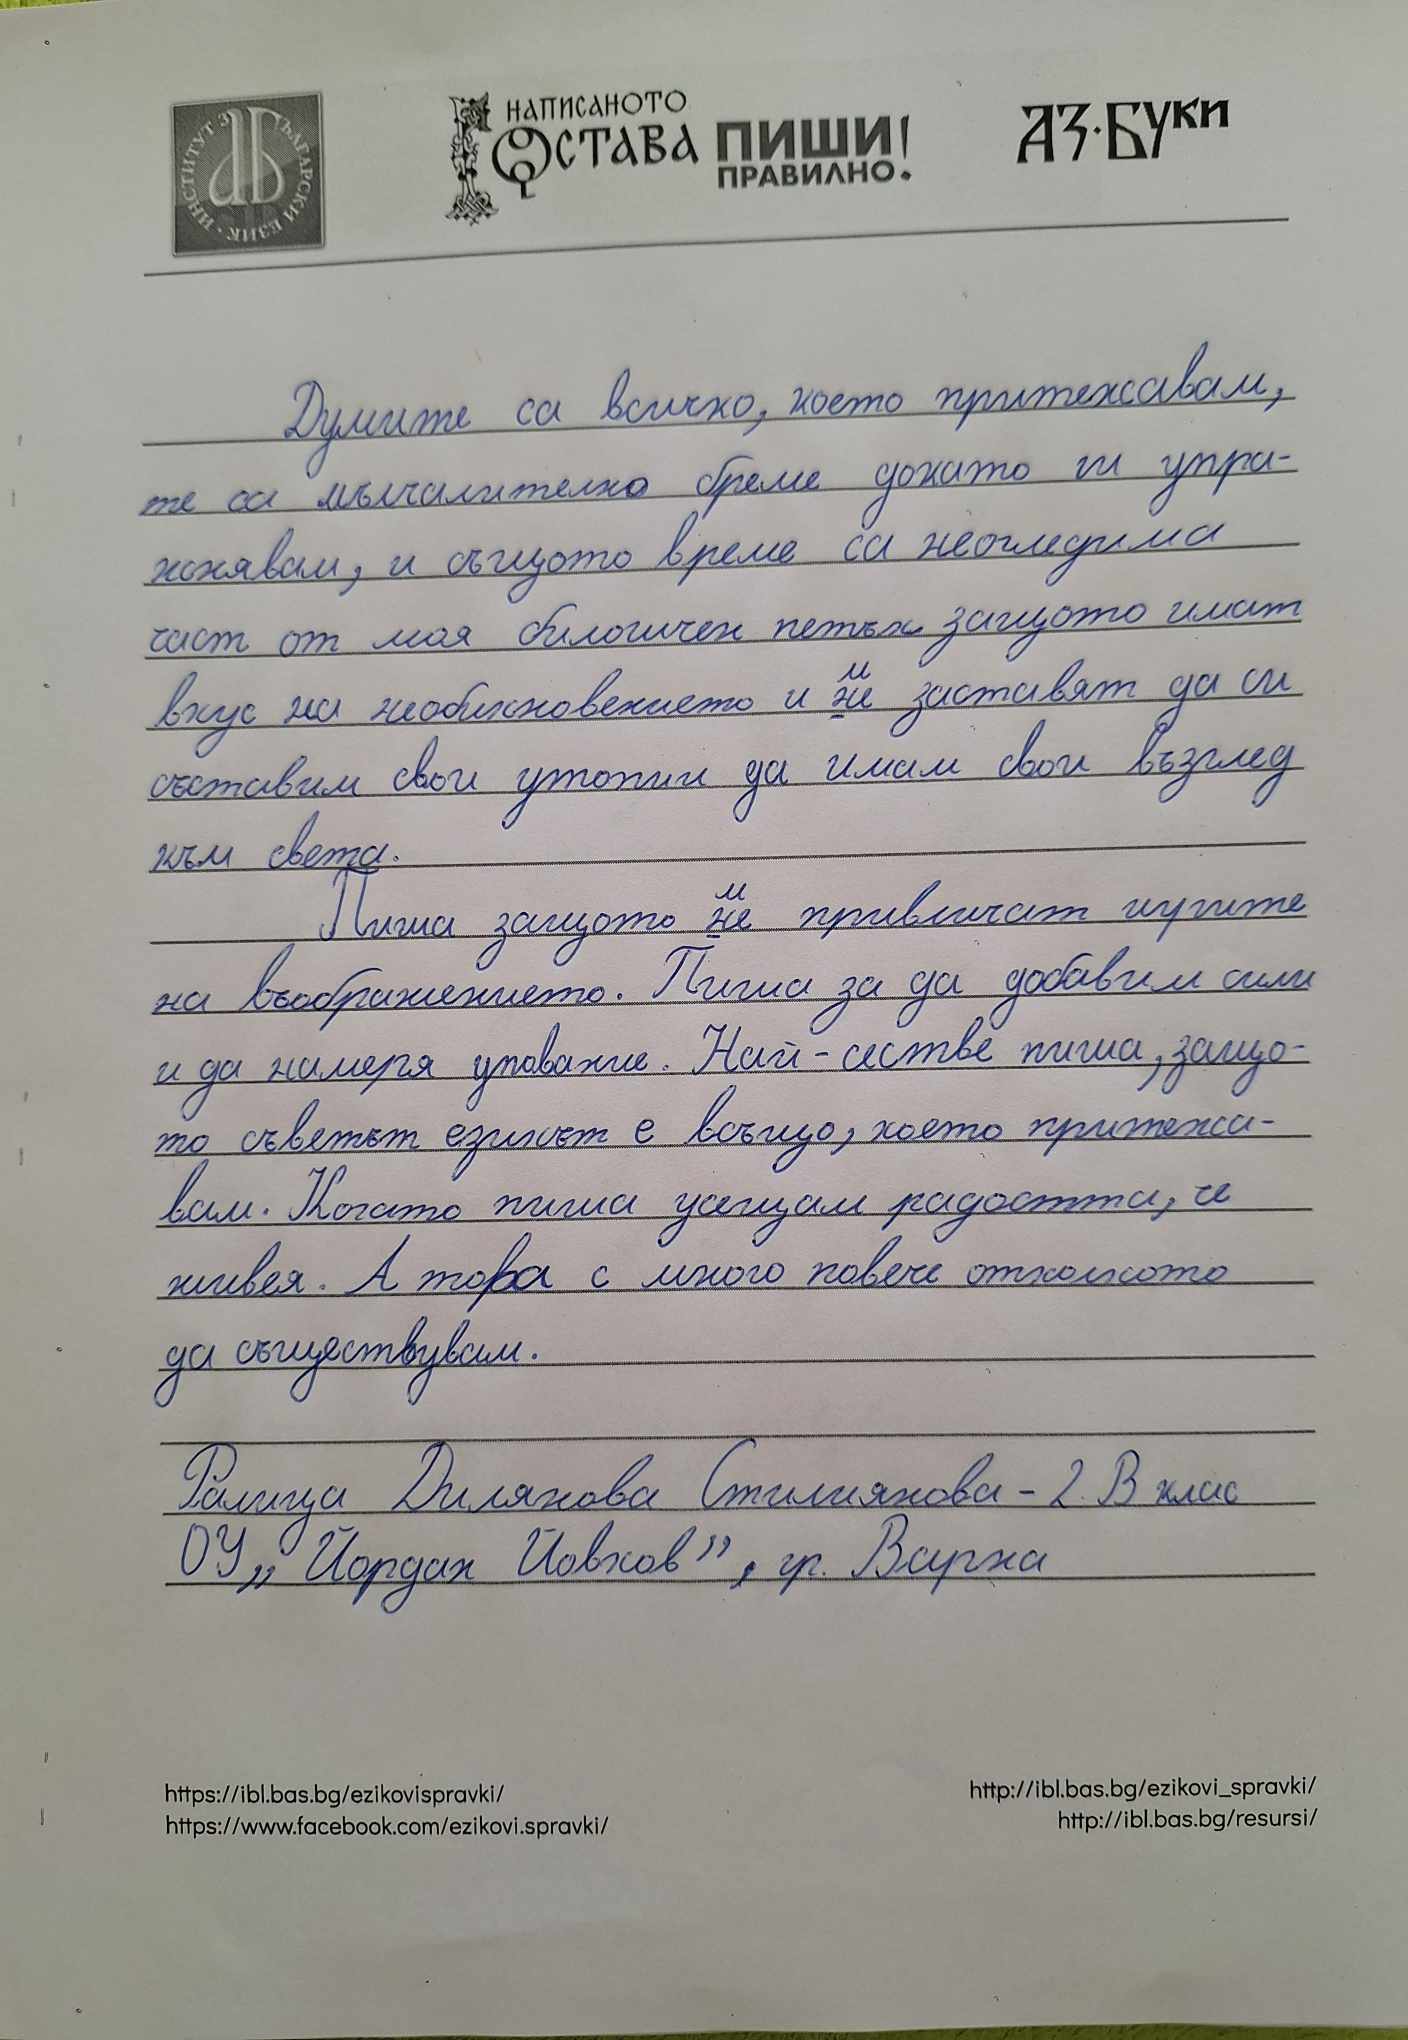 ИНСТИТУТ ЗА БЪЛГАРСКИ ЕЗИК
НАПИСАНОТО ОСТАВА ПИШИ ПРАВИЛНО!
АЗ·БУКИ
Думите са всичко, което притежавам,
те са мълчалително бреме докато ги упра-
жнявам, и същото време са неогледима
част от моя билогичен петък защото имат
вкус на необикновението и не заставят да си
съставим свои утопии да имам свои възглед
към света.
Пиша защото не привличат игрите
на въображението. Пиша за да добавим сили
и да намеря упование. Най-сестве пиша, защо-
то съветът езикът е всъщо, което притежа-
вам. Когато пиша усещам радостта, че
живея. А това с много повече отколкото
да съществувам.
Ралица Дилянова Стилиянова - 2. В клас
ОУ „Йордан Йовков", гр. Варна
https://ibl.bas.bg/ezikovispravki/
https://www.facebook.com/ezikovi.spravki/
http://ibl.bas.bg/ezikovi_spravki/
http://ibl.bas.bg/resursi/